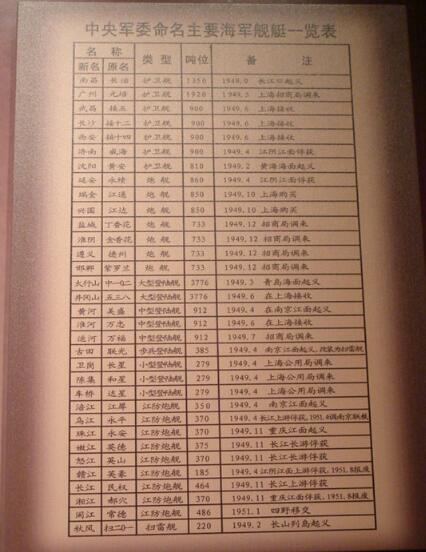 中央军委命名主要海军舰艇一览表
名 称 类 型 吨位 备 注
新名 原名
南昌 长治 护卫舰 1350 1949.9 长江口起义
广州 元培 护卫舰 1920 1949.5 上海招商局调来
武昌 接五 护卫舰 900 1949.6 上海接收
长沙 接十二 护卫舰 900 1949.6 上海接收
西安 接十四 护卫舰 900 1949.6 上海接收
济南 威海 护卫舰 900 1949.4 江阴江面俘获
沈阳 黄安 护卫舰 810 1949.2 黄海海面起义
延安 永绩 炮舰 860 1949.4 江阴江面俘获
瑞金 江通 炮舰 850 1949.10 上海购买
兴国 江达 炮舰 850 1949.10 上海购买
盐城 丁香花 炮舰 733 1949.12 招商局调来
淮阴 金香花 炮舰 733 1949.12 招商局调来
遵义 德州 炮舰 733 1949.12 招商局调来
邯郸 紫罗兰 炮舰 733 1949.12 招商局调来
太行山 中一〇二 大型登陆舰 3776 1949.3 青岛海面起义
井冈山 五三八 大型登陆舰 3776 1949.6 在上海接收
黄河 美盛 中型登陆舰 912 1949.4 在南京江面起义
淮河 万忠 中型登陆舰 912 1949.6 在上海接收
运河 万福 中型登陆舰 912 1949.7 招商局调来
古田 联光 步兵登陆舰 385 1949.4 南京江面起义,改装为扫雷舰
卫岗 长星 小型登陆舰 279 1949.4 上海公用局调来
陈集 和星 小型登陆舰 279 1949.4 上海公用局调来
车桥 达星 小型登陆舰 279 1949.4 上海公用局调来
涪江 江犀 江防炮舰 350 1949.4 南京江面起义
乌江 永平 江防炮舰 370 1949.4 长江上游俘获,1951.4调南京联被
珠江 永安 江防炮舰 370 1949.11 重庆江面起义
嫩江 英德 江防炮舰 375 1949.11 长江长游俘获
怒江 英山 江防炮舰 370 1949.11 长江长游俘获
赣江 英豪 江防炮舰 185 1949.4 江阴江面上游俘获,1951.8报废
长江 民权 江防炮舰 464 1949.11 长江上游俘获
湘江 郝穴 江防炮舰 370 1949.11 重庆江面俘获,1951.8报废
闽江 常德 江防炮舰 486 1951.1 四野移交
秋风 扫二〇一 扫雷舰 220 1949.2 长山列岛起义